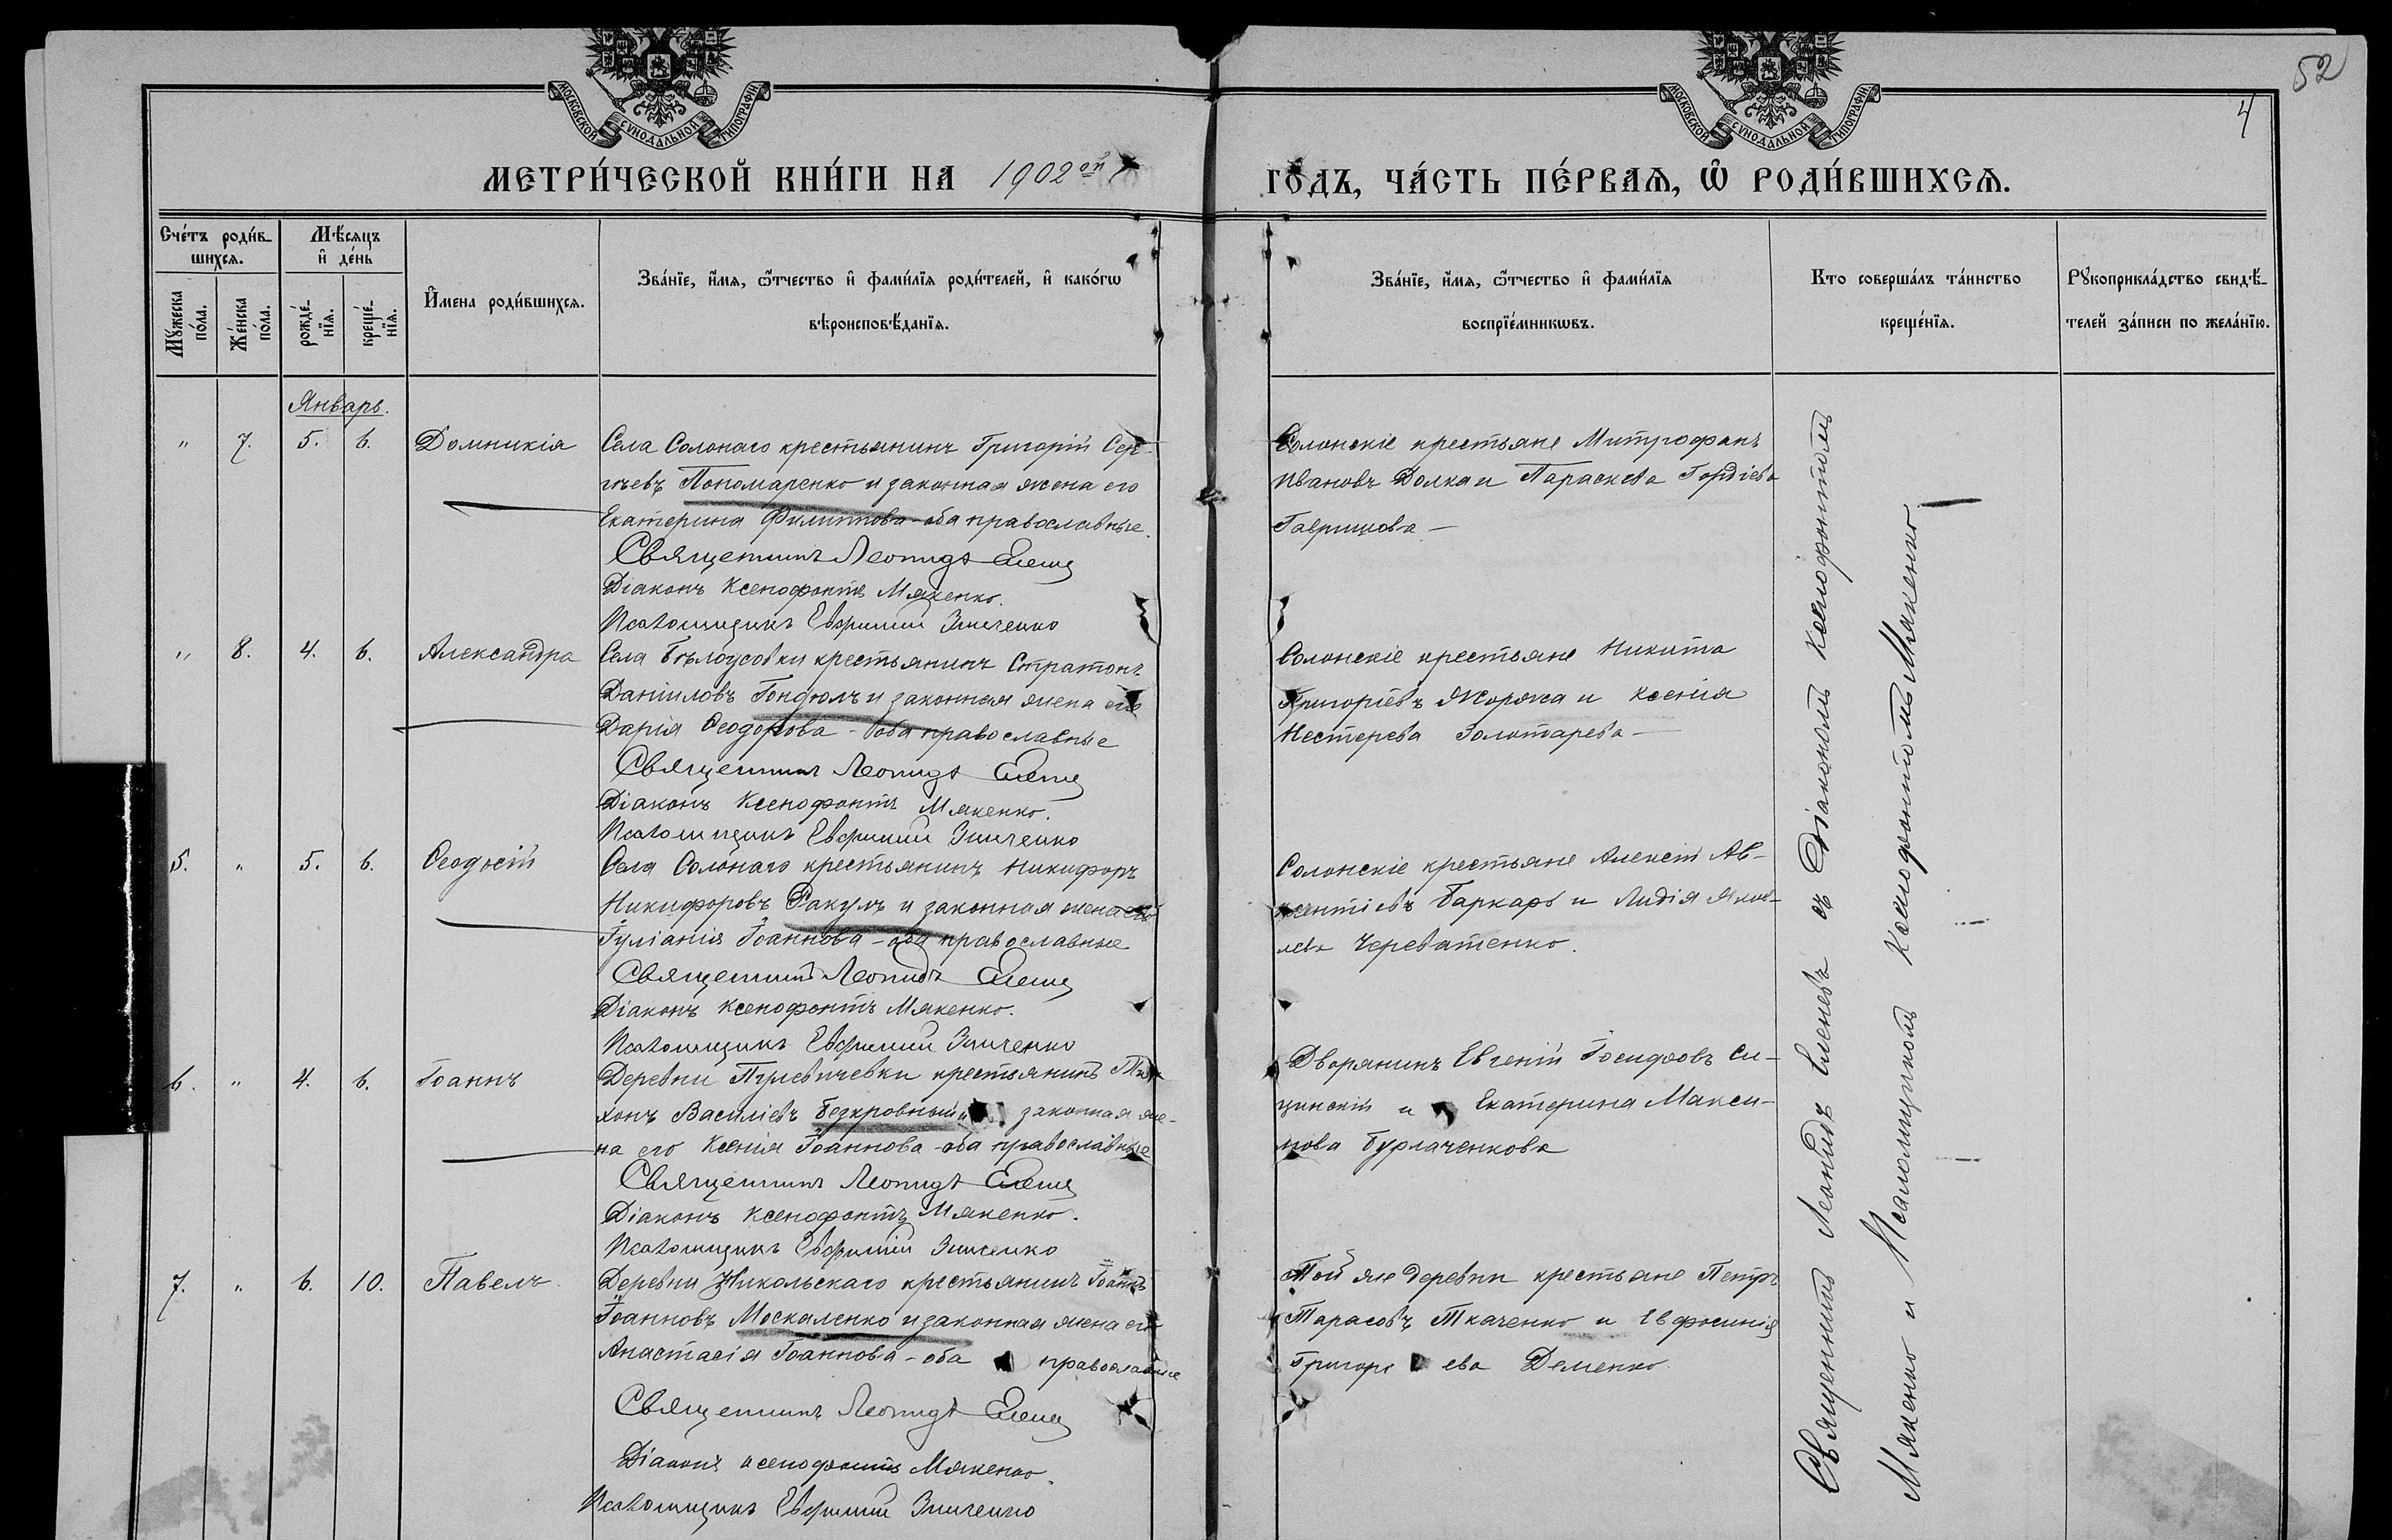 52
4
МОСКОВСКОЙ СУНОДАЛЬНОЙ ТИПОГРАФІИ
МОСКОВСКОЙ СУНОДАЛЬНОЙ ТИПОГРАФІИ
МЕТРИ́ЧЕСКОЙ КНИ́ГИ НА 1902 ой
ГО́ДЪ, ЧА́СТЬ ПЕ́РВАѦ, Ѡ҆ РОДИ́ВШИХСѦ.
Сче́тъ роди́в-
шихсѧ.
Мѣ́сѧцъ
и҆ де́нь
Мꙋ́жеска по́ла.
Же́нска по́ла.
рожде́-
нїѧ.
креще́-
нїѧ.
И҆мена роди́вшихсѧ.
Зва́нїе, и҆́мѧ, ѻ҆́тчество и҆ фами́лїѧ роди́телей, и҆ како́гѡ
вѣроисповѣ́данїѧ.
Зва́нїе, и҆́мѧ, ѻ҆́тчество и҆ фами́лїѧ
воспрїе́мникѡвъ.
Кто соверша́лъ та́инство
креще́нїѧ.
Рꙋкоприкла́дство свидѣ́-
телей за́писи по жела́нїю.
Январь.
" 7. 5. 6. Домникія
Села Солонаго крестьянинъ Григорій Сер-
гѣевъ Пономаренко и законная жена его
Екатерина Филиппова - оба православные.
Священникъ Леонидъ
Діаконъ Ксенофонтъ Мякенко.
Псаломщикъ Евфимій Зинченко
Солонскіе крестьяне Митрофанъ
Ивановъ Долка и Параскева Гордіева
Гаврикова -
" 8. 4. 6. Александра
Села Бѣлоусовки крестьянинъ Стратонъ
Даніиловъ Гондюлъ и законная жена его
Дарія Ѳеодорова - оба православные
Священникъ Леонидъ
Діаконъ Ксенофонтъ Мякенко.
Псаломщикъ Евфимій Зинченко
Солонскіе крестьяне Никита
Григоріевъ Жоряка и Ксенія
Нестерева Золотарева -
5. " 5. 6. Ѳеодосій
Села Солонаго крестьянинъ Никифоръ
Никифоровъ Ракулъ и законная жена его
Іуліанія Іоаннова - оба православные
Священникъ Леонидъ
Діаконъ Ксенофонтъ Мякенко.
Псаломщикъ Евфимій Зинченко
Солонскіе крестьяне Алексій Ав-
ксентіевъ Баркаръ и Лидія Яков-
лева Череватенко.
6. " 4. 6. Іоаннъ
Деревни Пулевичевки крестьянинъ Ти-
хонъ Василіевъ Безкровный и законная же-
на его Ксенія Іоаннова - оба православные
Священникъ Леонидъ
Діаконъ Ксенофонтъ Мякенко.
Псаломщикъ Евфимій Зинченко
Дворянинъ Евгеній Іосифовъ Си-
цинскій и Екатерина Макси-
мова Бурлаченкова
7. " 6. 10. Павелъ
Деревни Никольскаго крестьянинъ Іоаннъ
Іоанновъ Москаленко и законная жена его
Анастасія Іоаннова - оба православные
Священникъ Леонидъ
Діаконъ Ксенофонтъ Мякенко.
Псаломщикъ Евфимій Зинченко
Той же деревни крестьяне Петръ
Тарасовъ Ткаченко и Евфросинія
Григорьева Деменко.
Священникъ Леонидъ Еленевъ съ Діакономъ Ксенофонтомъ
Мякенко и Псаломщикомъ Ксенофонтомъ Мякенко